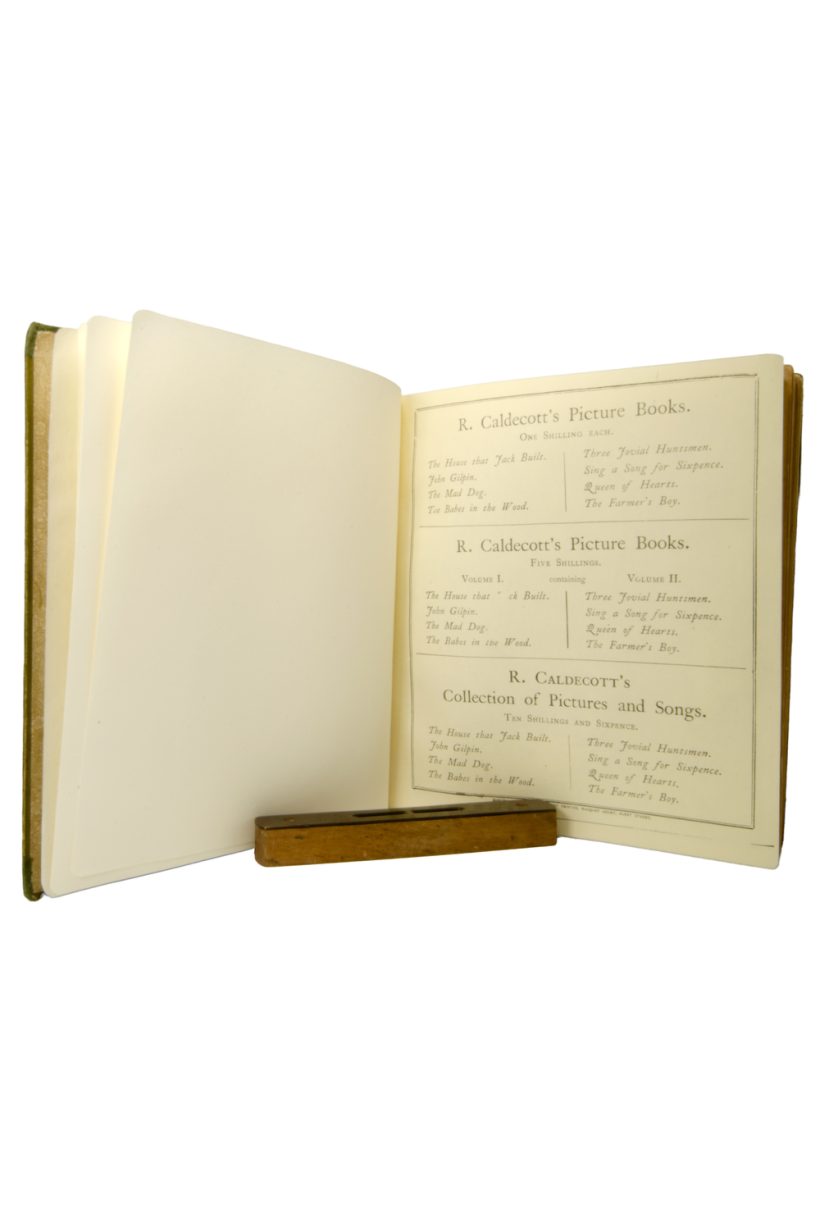 R. Caldecott's Picture Books.
ONE SHILLING EACH.
The House that Jack Built.
John Gilpin.
The Mad Dog.
Toe Babes in the Wood.
Three Jovial Huntsmen.
Sing a Song for Sixpence.
Queen of Hearts.
The Farmer's Boy.
R. Caldecott's Picture Books.
FIVE SHILLINGS.
VOLUME I. containing VOLUME II.
The House that " ck Built.
John Gilpin.
The Mad Dog.
The Babes in the Wood.
Three Jovial Huntsmen.
Sing a Song for Sixpence.
Queen of Hearts.
The Farmer's Boy.
R. CALDECOTT'S
Collection of Pictures and Songs.
TEN SHILLINGS AND SIXPENCE.
The House that Jack Built.
John Gilpin.
The Mad Dog.
The Babes in the Wood.
Three Jovial Huntsmen.
Sing a Song for Sixpence.
Queen of Hearts,
The Farmer's Boy.